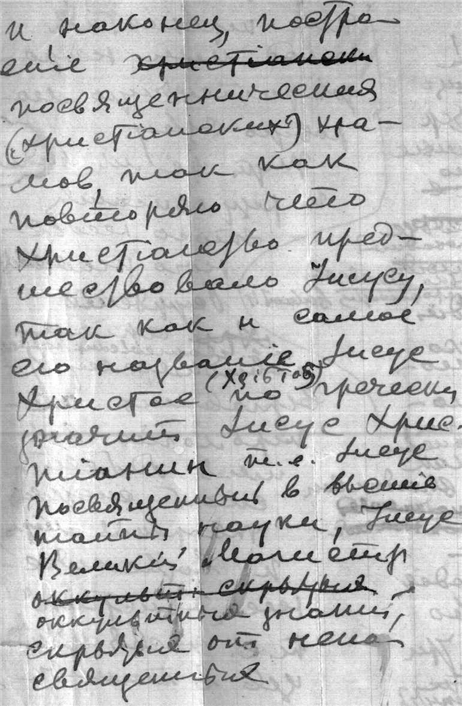 и наконец, постро
еніе христіански
посвященническия
(христіанских) хра-
мов, так как
повторяю что
Христіанство пред-
шествовало Iисусу,
так как и самое
его названіе Iисус
Христос (Χρίστος) по гречески
значит Iисус Хрис-
тіанин т.е. Iисус
посвященный в высшія
тайны науки, Iисус
Великій Магистр
оккульт. скрытыя
оккультныя знаній,
скрытыя от непо
священныя